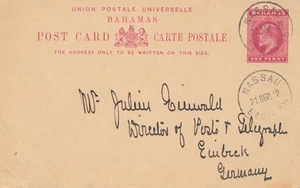 UNION POSTALE UNIVERSELLE
BAHAMAS
POST CARD CARTE POSTALE
THE ADDRESS ONLY TO BE WRITTEN ON THIS SIDE.
BAHAMAS
ONE PENNY
NASSAU
NASSAU
Mr Julius
Director of Posts & Telegraph
Einbeck
Germany